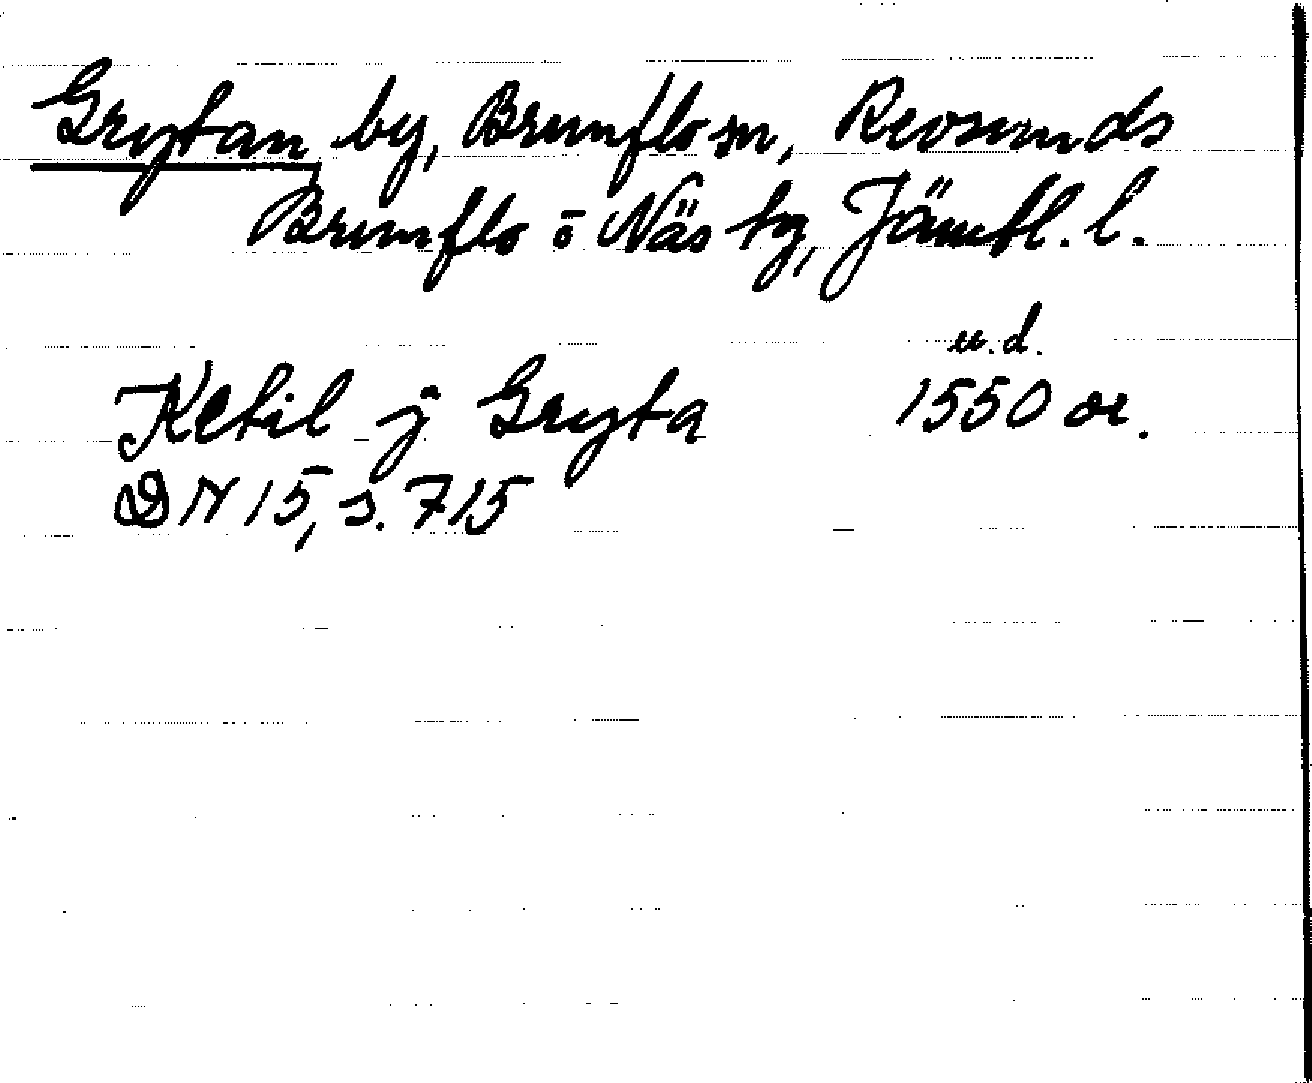 Grytan by, Brunflo sn, Revsunds
Brunflo o Näs tg, Jämtl. l.
u.d.
Ketil ÿ Gryta 1550 or.
DN 15, s. 715